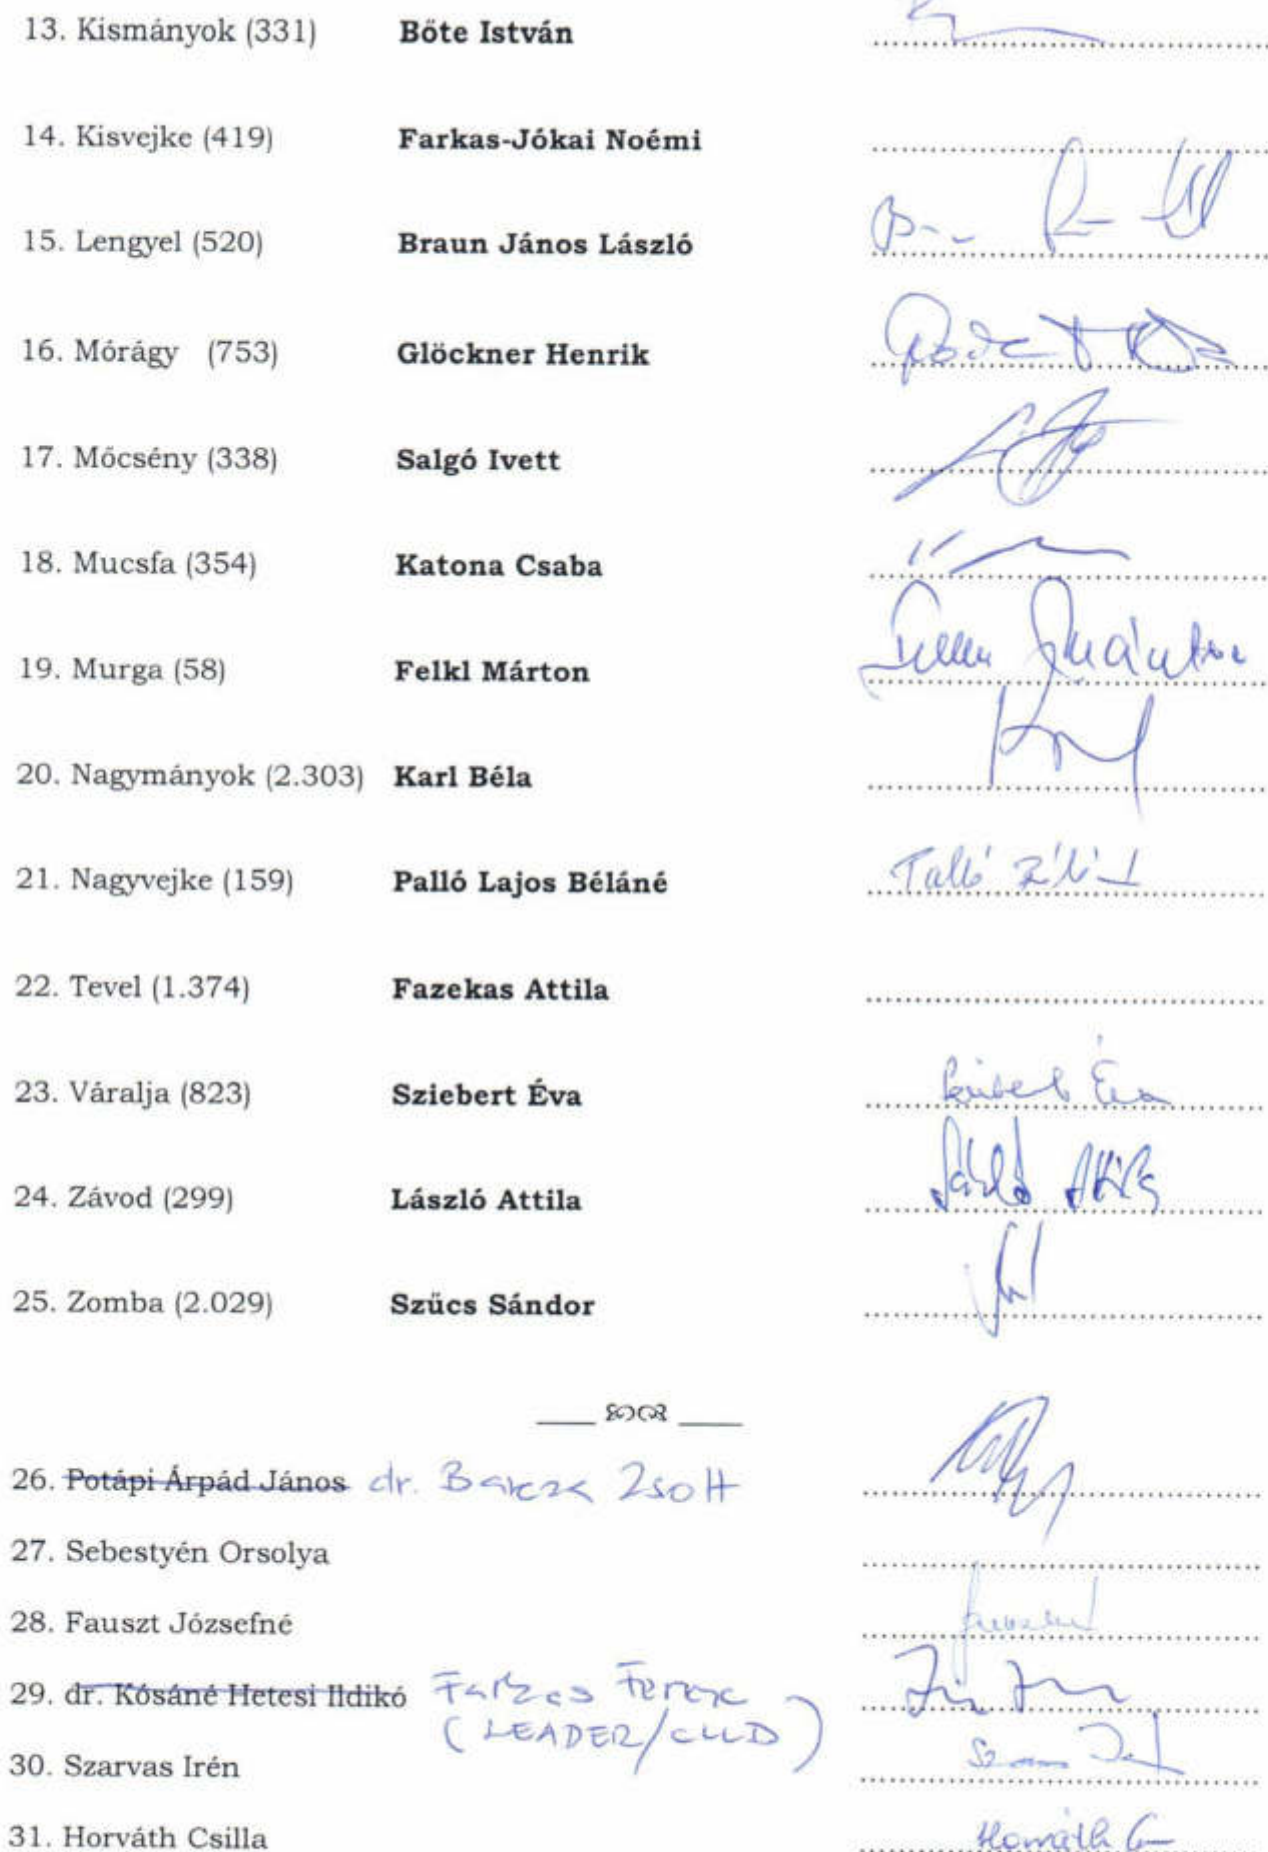 13. Kismányok (331) Bőte István
14. Kisvejke (419) Farkas-Jókai Noémi
15. Lengyel (520) Braun János László
16. Mórágy (753) Glöckner Henrik
17. Mőcsény (338) Salgó Ivett
18. Mucsfa (354) Katona Csaba
19. Murga (58) Felkl Márton
20. Nagymányok (2.303) Karl Béla
21. Nagyvejke (159) Palló Lajos Béláné
22. Tevel (1.374) Fazekas Attila
23. Váralja (823) Sziebert Éva Éva
24. Závod (299) László Attila László Attila
25. Zomba (2.029) Szűcs Sándor
26. Potápi Árpád János dr. Barcza Zsolt
27. Sebestyén Orsolya
28. Fauszt Józsefné
29. dr. Kósáné Hetesi Ildikó Farkas Ferenc
(LEADER/CLLD)
30. Szarvas Irén
31. Horváth Csilla Horváth